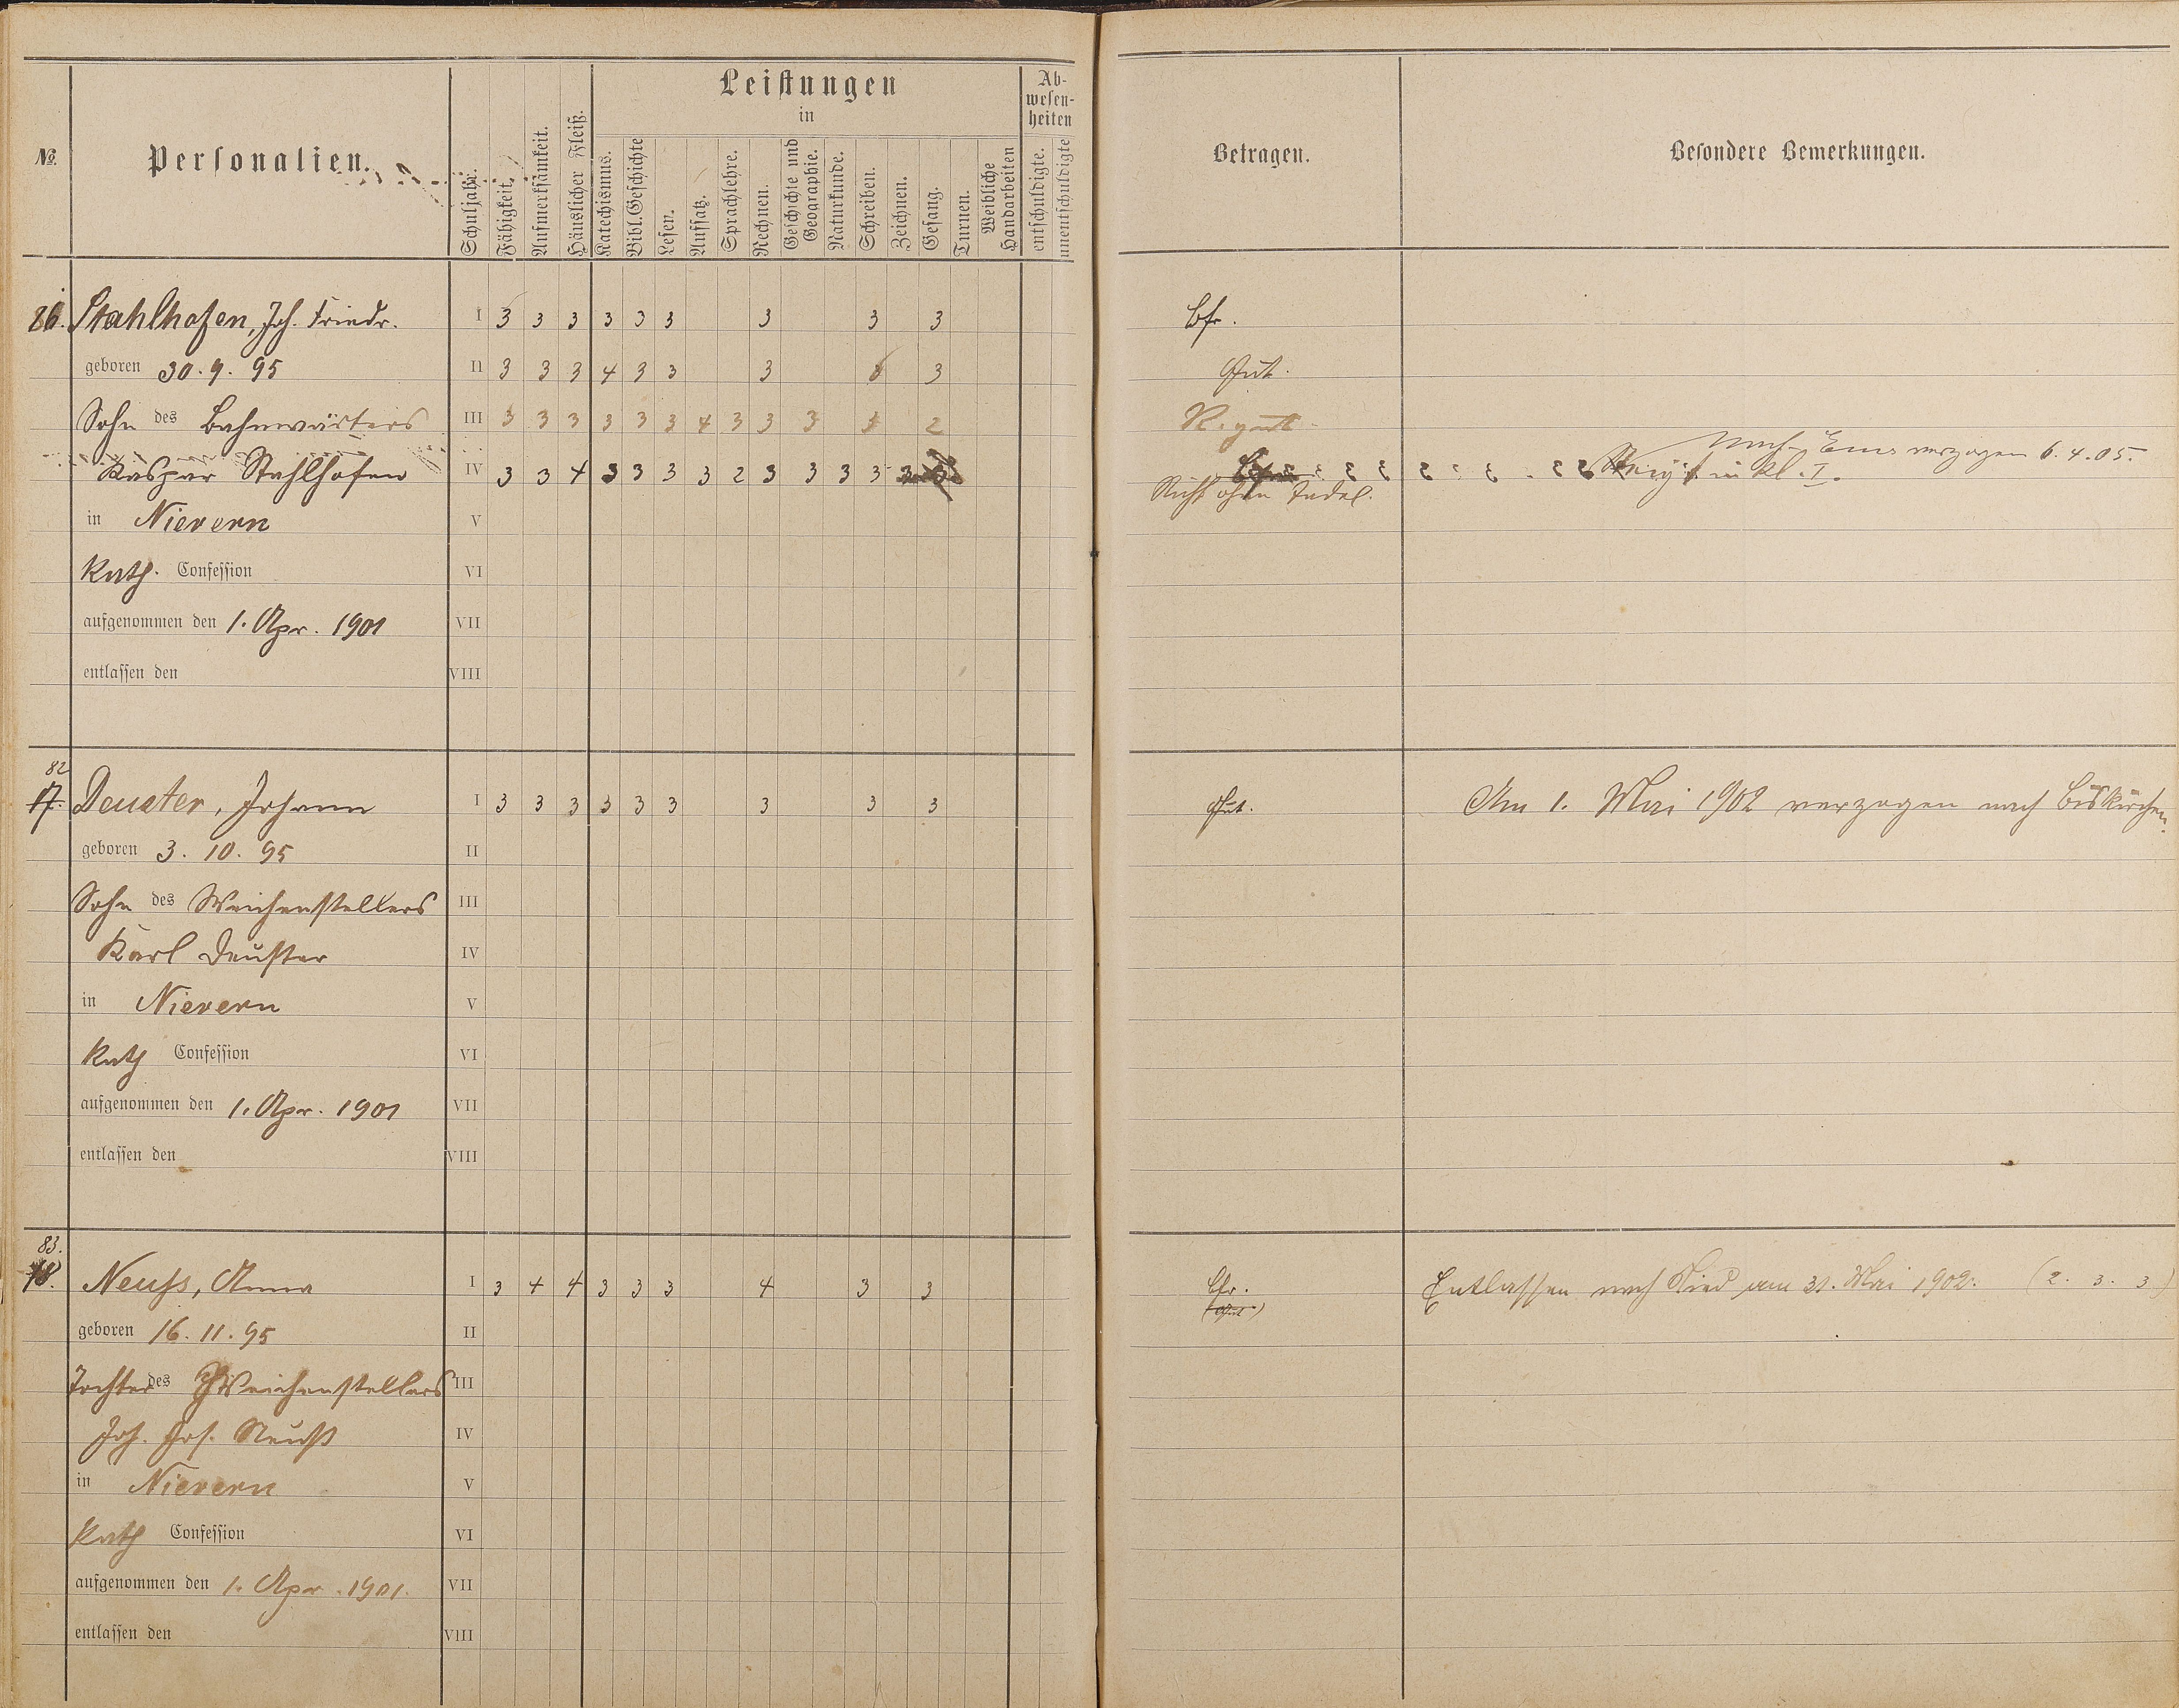 Leistungen
in
Ab-
wesen-
heiten
№
Personalien.
Schuljahr.
Fähigkeit.
Aufmerksamkeit.
Häuslicher Fleiß.
Katechismus.
Bibl. Geschichte
Lesen.
Aufsatz.
Sprachlehre.
Rechnen.
Geschichte und
Geographie.
Naturkunde.
Schreiben.
Zeichnen.
Gesang.
Turnen.
Weibliche
Handarbeiten
entschuldigte.
unentschuldigte
Betragen.
Besondere Bemerkungen.
86. Stahlhofen, Joh. Friedr. I 3 3 3 3 3 3 3 3 3 Bfr.
geboren 30. 9. 95 II 3 3 3 4 3 3 3 3 Gut.
Sohn des Bahnwärters III 3 3 3 3 3 3 4 3 3 3 3 2 R. gut
nach Ems verzogen 6. 4. 05.
Kaspar Stahlhofen IV 3 3 4 3 3 3 3 2 3 3 3 3
in Kl. I.
Nicht ohne Tadel.
in Nievern V
Kath. Confession VI
aufgenommen den 1. Apr. 1901 VII
entlassen den VIII
82
17. Deuster, Johann I 3 3 3 3 3 3 3 3 3 Gut. Am 1. Mai 1902 verzogen nach Biskirchen.
geboren 3. 10. 95 II
Sohn des Weichenstellers III
Karl Deuster IV
in Nievern V
Kath Confession VI
aufgenommen den 1. Apr. 1901 VII
entlassen den VIII
83.
18. Neuss, Anna I 3 4 4 3 3 3 4 3 3 Bfr. Entlassen nach Nied am 31. Mai 1902. (2. 3. 3)
(Gut)
geboren 16. 11. 95 II
Tochter des Weichenstellers III
Joh. Jos. Neuß IV
in Nievern V
Kath Confession VI
aufgenommen den 1. Apr. 1901. VII
entlassen den VIII